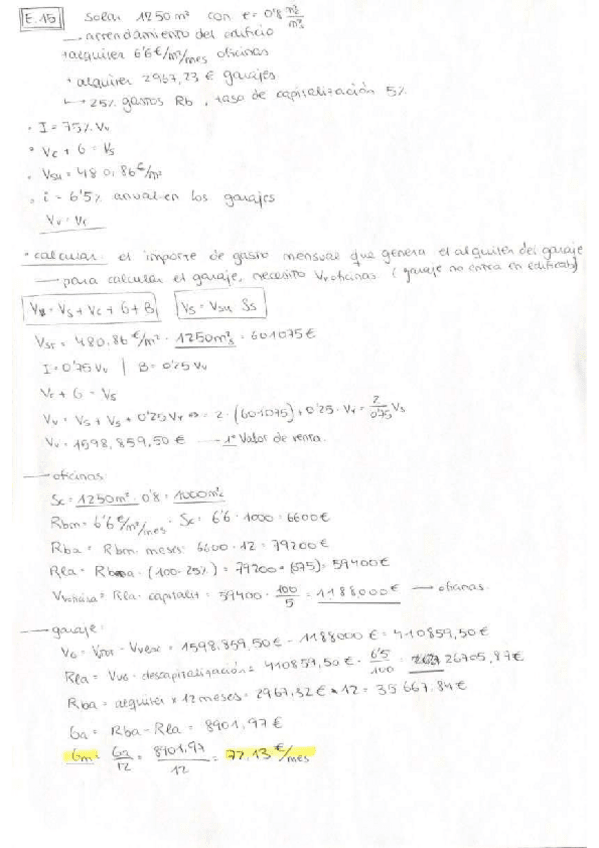 E.15 Solar 1250 m² con e = 0'8 m²/m²
→ arrendamiento del edificio
+ alquiler 6'6 €/m²/mes oficinas
+ alquiler 2967,23 € garajes
↳ 25% gastos Rb, tasa de capitalización 5%
• I = 75% Vv
• Vc + G = Vs
• Vsu = 480,86 €/m²
• i = 6'5% anual en los garajes
Vv = Vr
• calcular: el importe de gasto mensual que genera el alquiler del garaje
→ para calcular el garaje, necesito Vv oficinas (garaje no entra en edificab)
Vv = Vs + Vc + G + B Vs = Vsu · Ss
Vsr = 480,86 €/m² · 1250m² = 601075€
I = 0'75 Vv | B = 0'25 Vv
Vc + G = Vs
Vv = Vs + Vs + 0'25 Vv ⇔ = 2 · (601075) + 0'25 · Vv = 2/0'75 Vs
Vv = 1598,859,50 € → 1º Valor de venta.
→ oficinas:
Sc = 1250m² · 0'8 = 1000m²
Rbm = 6'6 €/m²/mes · Sc = 6'6 · 1000 = 6600€
Rba = Rbm · meses = 6600 · 12 = 79200€
Rla = Rba · (100-25%) = 79200 · (0'75) = 59400€
Vv oficina = Rla · capitaliz = 59400 · 100/5 = 1188000€ → oficinas.
→ garaje:
VG = Vtot - Vvofic = 1598.859,50€ - 1188000€ = 410859,50€
Rla = VvG · descapitalización = 410859,50€ · 6'5/100 = 26705,87€
Rba = alquiler × 12 meses = 2967,32€ × 12 = 35667,84€
Ga = Rba - Rla = 8901,97€
Gm = Ga/12 = 8901,97/12 = 72,13 €/mes